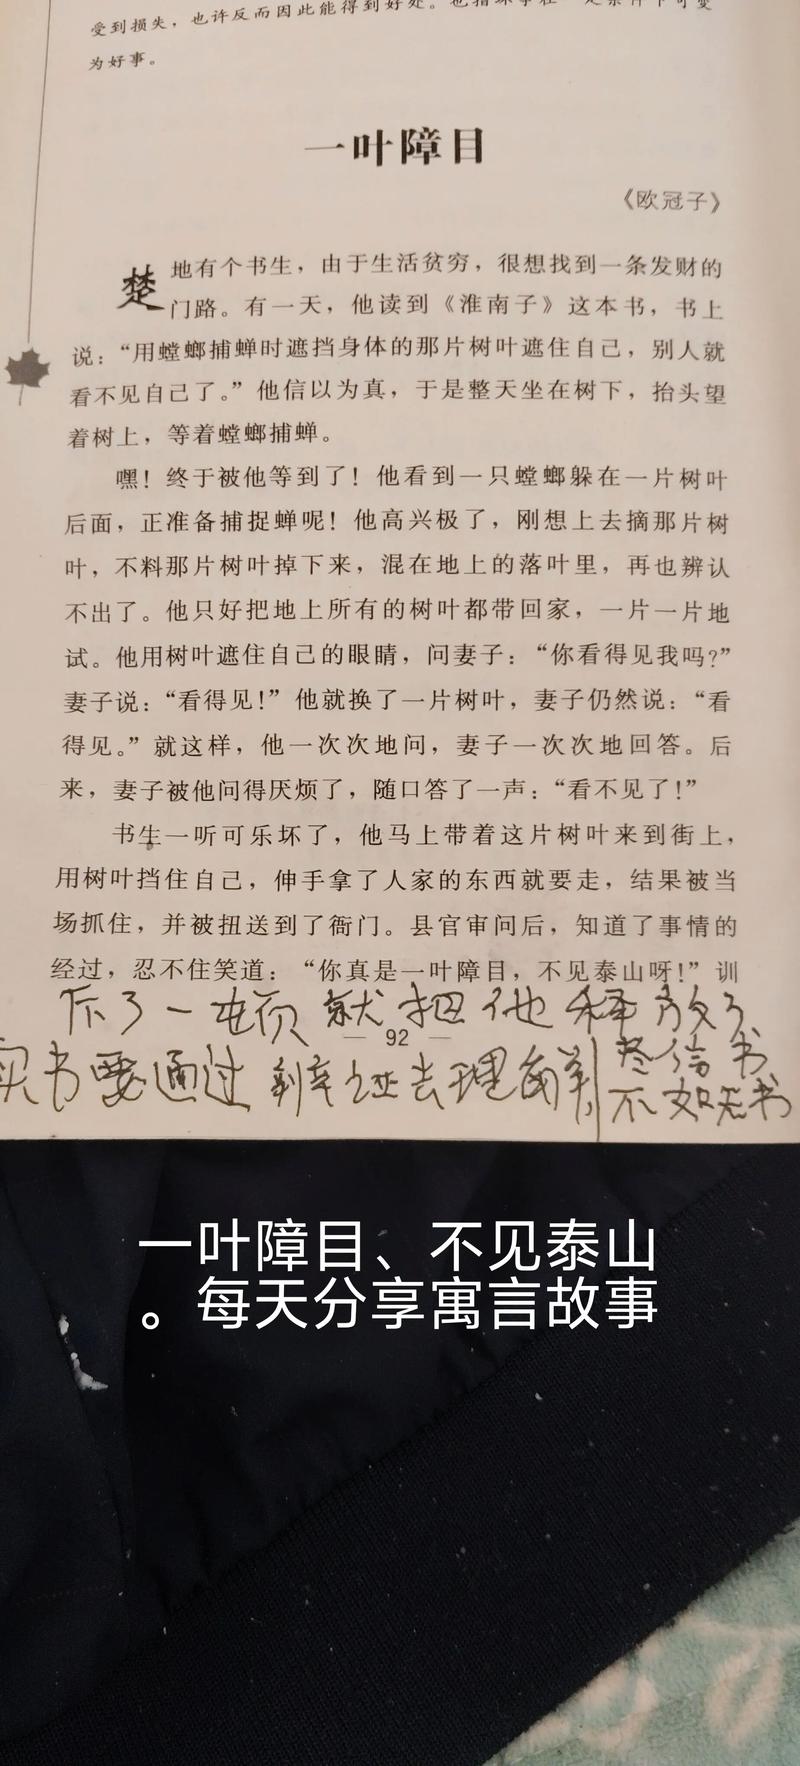 受到损失，也许反而因此能得到好处。也指坏事在一定条件下可变
为好事。
一叶障目
《欧冠子》
楚地有个书生，由于生活贫穷，很想找到一条发财的
门路。有一天，他读到《淮南子》这本书，书上
说：“用螳螂捕蝉时遮挡身体的那片树叶遮住自己，别人就
看不见自己了。”他信以为真，于是整天坐在树下，抬头望
着树上，等着螳螂捕蝉。
嘿！终于被他等到了！他看到一只螳螂躲在一片树叶
后面，正准备捕捉蝉呢！他高兴极了，刚想上去摘那片树
叶，不料那片树叶掉下来，混在地上的落叶里，再也辨认
不出了。他只好把地上所有的树叶都带回家，一片一片地
试。他用树叶遮住自己的眼睛，问妻子：“你看得见我吗?”
妻子说：“看得见！”他就换了一片树叶，妻子仍然说：“看
得见。”就这样，他一次次地问，妻子一次次地回答。后
来，妻子被他问得厌烦了，随口答了一声：“看不见了！”
书生一听可乐坏了，他马上带着这片树叶来到街上，
用树叶挡住自己，伸手拿了人家的东西就要走，结果被当
场抓住，并被扭送到了衙门。县官审问后，知道了事情的
经过，忍不住笑道：“你真是一叶障目，不见泰山呀！”训
斥了一顿就把他释放了
— 92 —
书要通过辩证去理解 尽信书
不如无书
一叶障目、不见泰山
。每天分享寓言故事